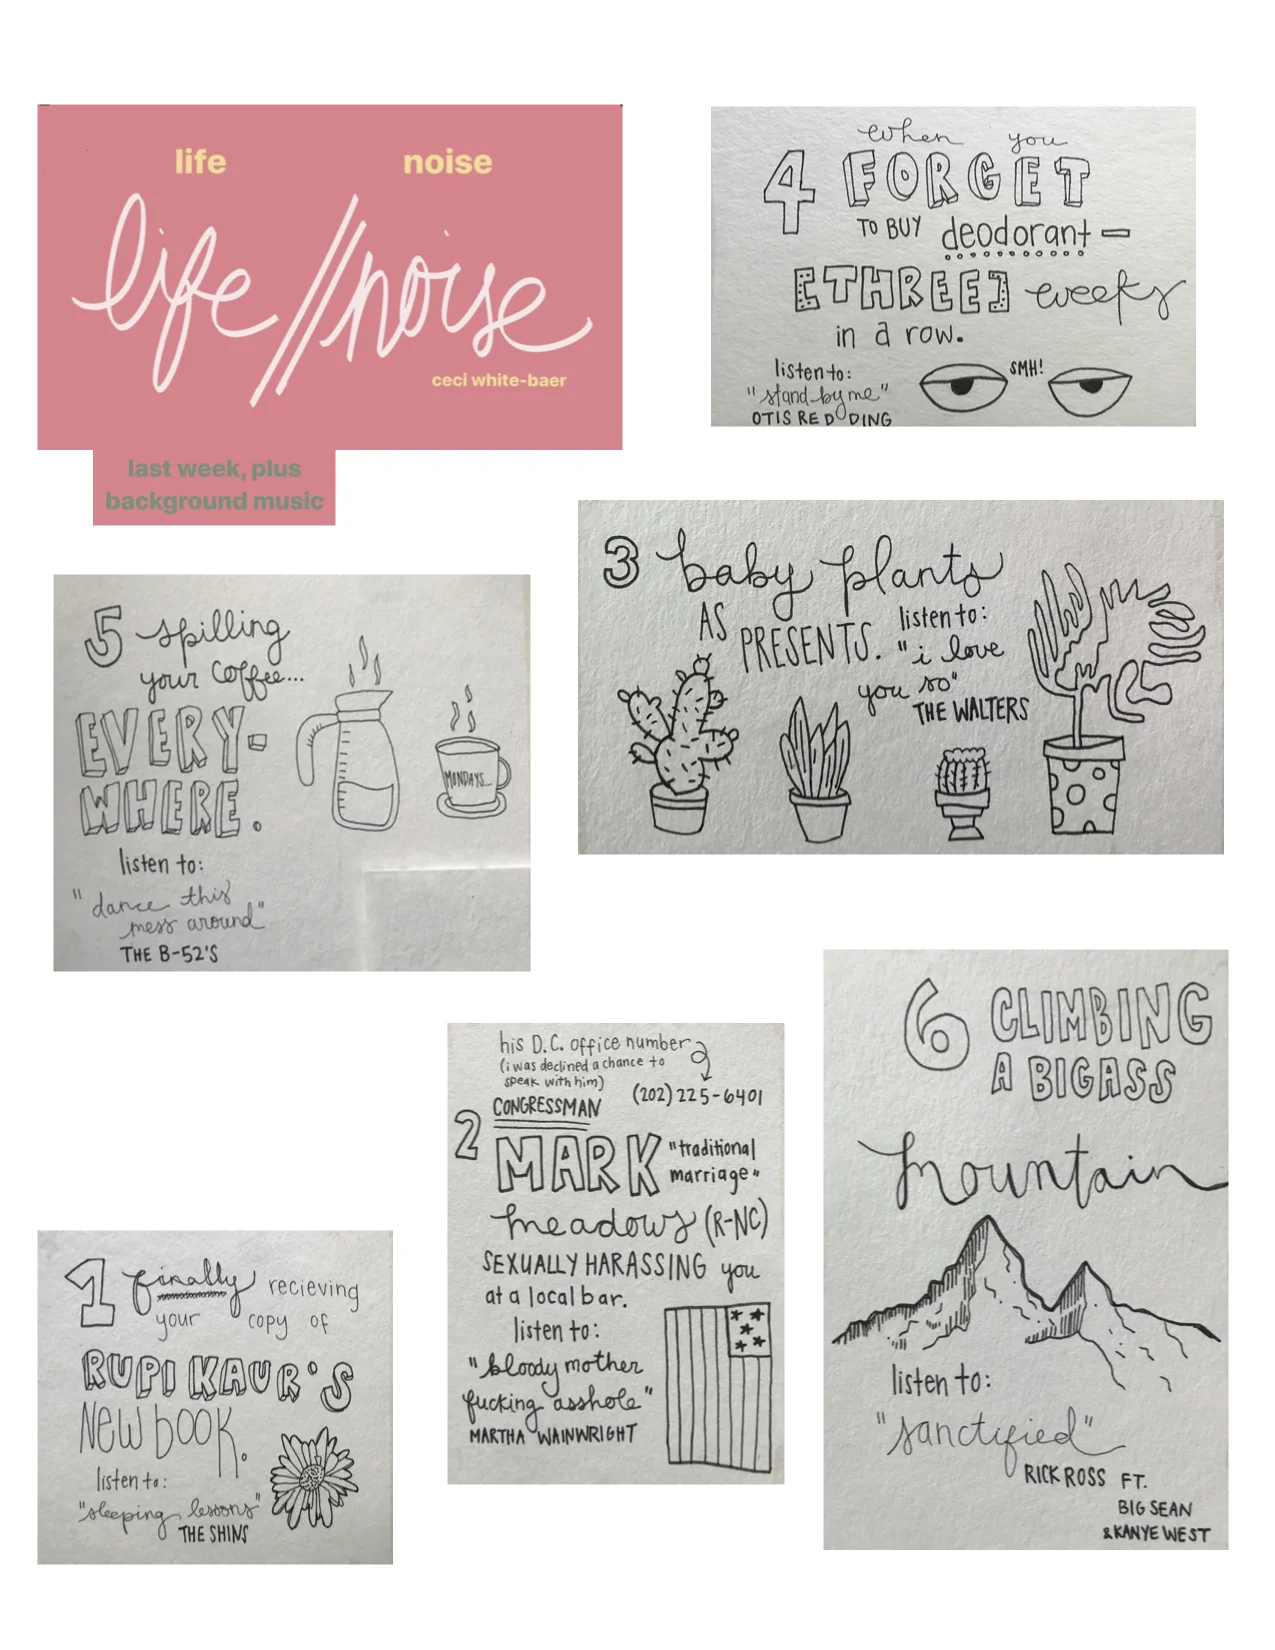 life noise
life//noise
ceci white-baer
last week, plus
background music
4 when you
FORGET
TO BUY deodorant—
[THREE] weeks
in a row.
listen to:
"stand by me"
OTIS REDDING
SMH!
3 baby plants
AS
PRESENTS.
listen to:
"i love
you so"
THE WALTERS
5 spilling
your coffee...
EVERY-
WHERE.
MONDAYS...
listen to:
"dance this
mess around"
THE B-52'S
6 CLIMBING
A BIGASS
mountain
listen to:
"sanctified"
RICK ROSS FT.
BIG SEAN
& KANYE WEST
his D.C. office number
(i was declined a chance to
speak with him)
(202) 225-6401
2 CONGRESSMAN
MARK "traditional
marriage"
meadows (R-NC)
SEXUALLY HARASSING you
at a local bar.
listen to:
"bloody mother
fucking asshole"
MARTHA WAINWRIGHT
1 finally recieving
your copy of
RUPI KAUR'S
New book.
listen to:
"sleeping lessons"
THE SHINS